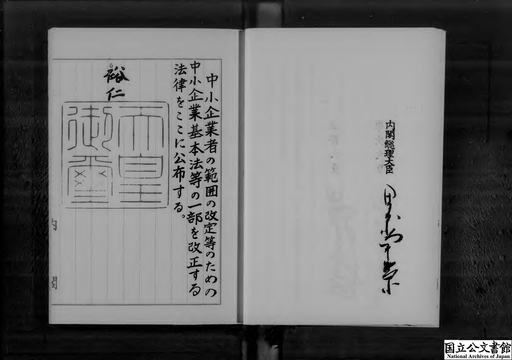 内閣総理大臣
中小企業者の範囲の改定等のための
中小企業基本法等の一部を改正する
法律をここに公布する。
裕仁
天皇
御璽
内閣
国立公文書館
National Archives of Japan